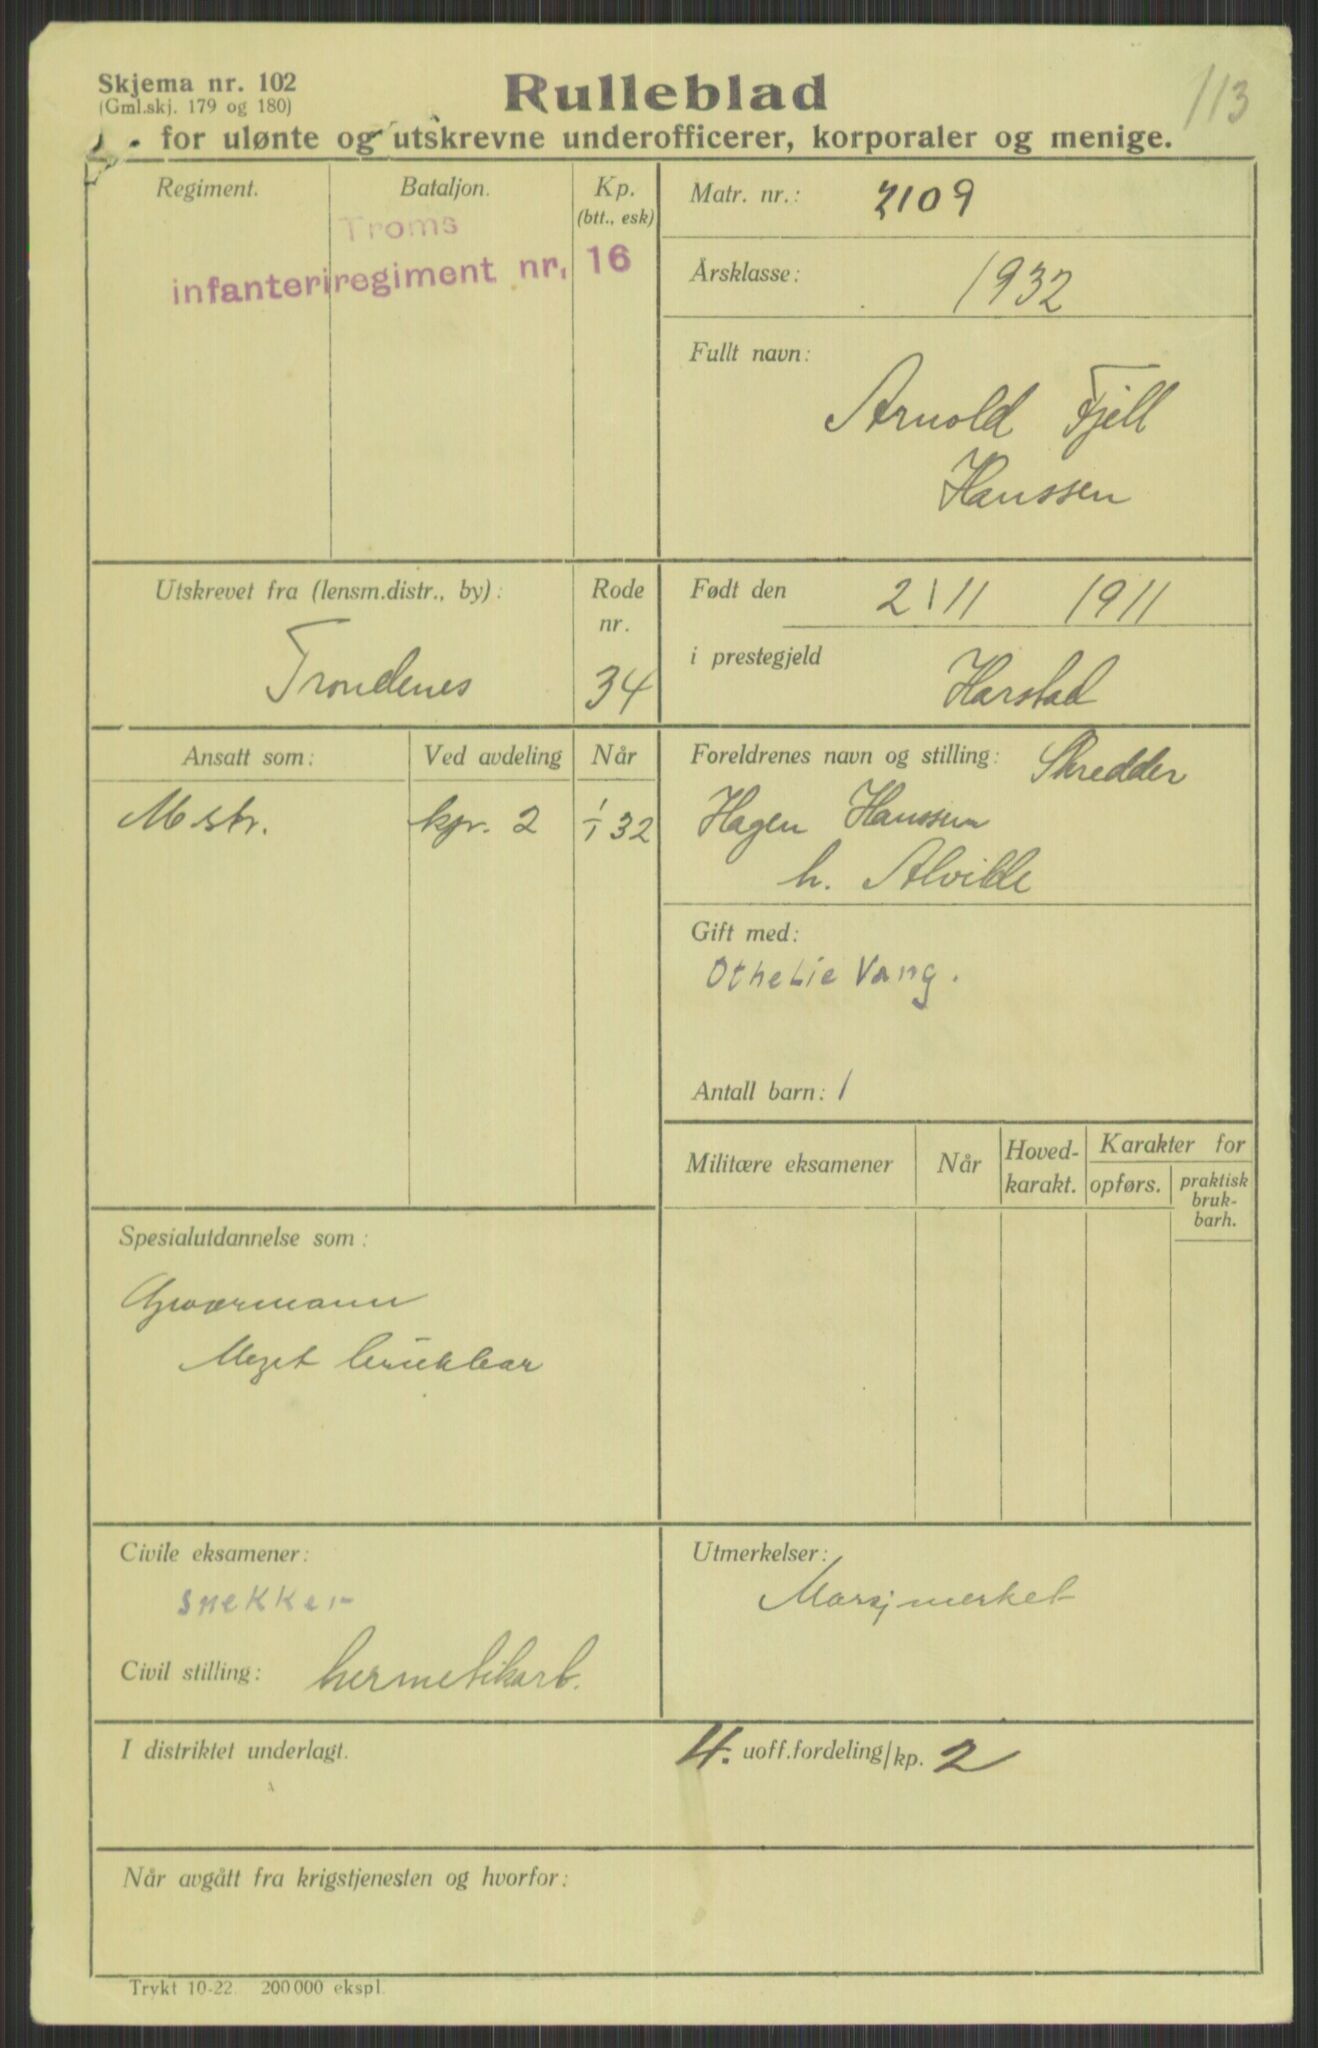 113
Skjema nr. 102
(Gml.skj. 179 og 180)
Rulleblad
for ulønte og utskrevne underofficerer, korporaler og menige.
Regiment.
Bataljon.
Kp.
(btt., esk)
Troms
infanteriregiment nr. 16
Matr. nr.: 2109
Årsklasse: 1932
Fullt navn:
Arnold Fjell
Hanssen
Utskrevet fra (lensm.distr., by):
Trondenes
Rode
nr.
34
Født den 2/11 1911
i prestegjeld Harstad
Ansatt som:
Ved avdeling
Når
M str.
kp. 2
1/1 32
Foreldrenes navn og stilling: Skredder
Hagen Hanssen
h. Alvilde
Gift med:
Othelie Vang.
Antall barn: 1
Militære eksamener
Når
Hoved-
karakt.
Karakter for
opførs.
praktisk
bruk-
barh.
Spesialutdannelse som:
Gjeværmann
Meget brukbar
Civile eksamener:
snekker
Civil stilling: hermetikarb.
Utmerkelser:
Marsjmerket
I distriktet underlagt.
4. uoff.fordeling/kp. 2
Når avgått fra krigstjenesten og hvorfor:
Trykt 10-22. 200 000 ekspl.